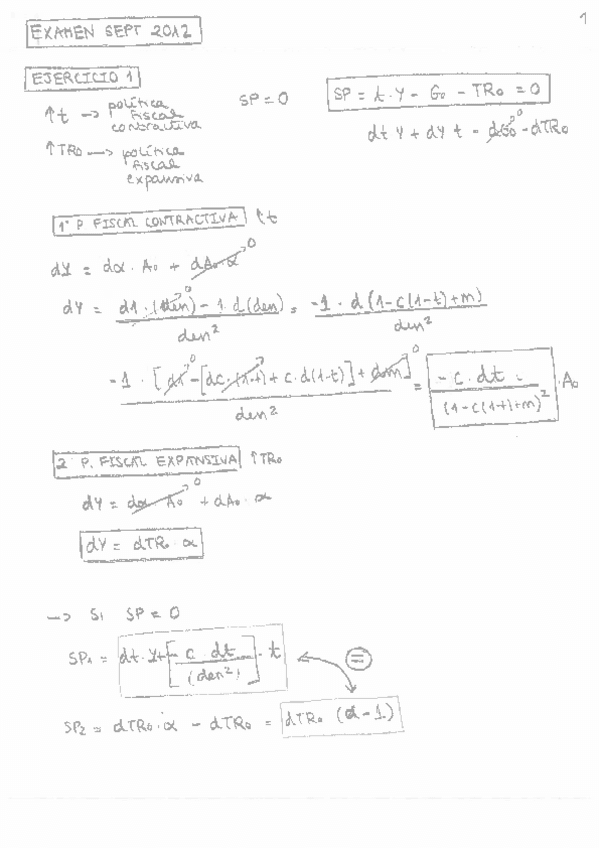 1
EXAMEN SEPT 2012
EJERCICIO 1
↑t → política fiscal contractiva
SP = 0
SP = t · Y - G₀ - TR₀ = 0
dt Y + dY t - dG₀⁰ - dTR₀
↑TR₀ → política fiscal expansiva
1º P. FISCAL CONTRACTIVA ↑t
dY = dα · A₀ + dA₀ · α⁰
dY = d1 · (den)⁰ - 1 · d(den) / den² = -1 · d(1-c(1-t)+m) / den²
-1 · [d1⁰ - [dc · (1-t) + c · d(1-t)] + dm]⁰ / den² = - c · dt · / (1-c(1-t)+m)² · A₀
2º P. FISCAL EXPANSIVA ↑TR₀
dY = dα · A₀⁰ + dA₀ · α
dY = dTR₀ · α
→ Si SP = 0
SP₁ = dt · Y + [- c · dt / (den²)] · t
=
SP₂ = dTR₀ · α - dTR₀ = dTR₀ (α - 1)